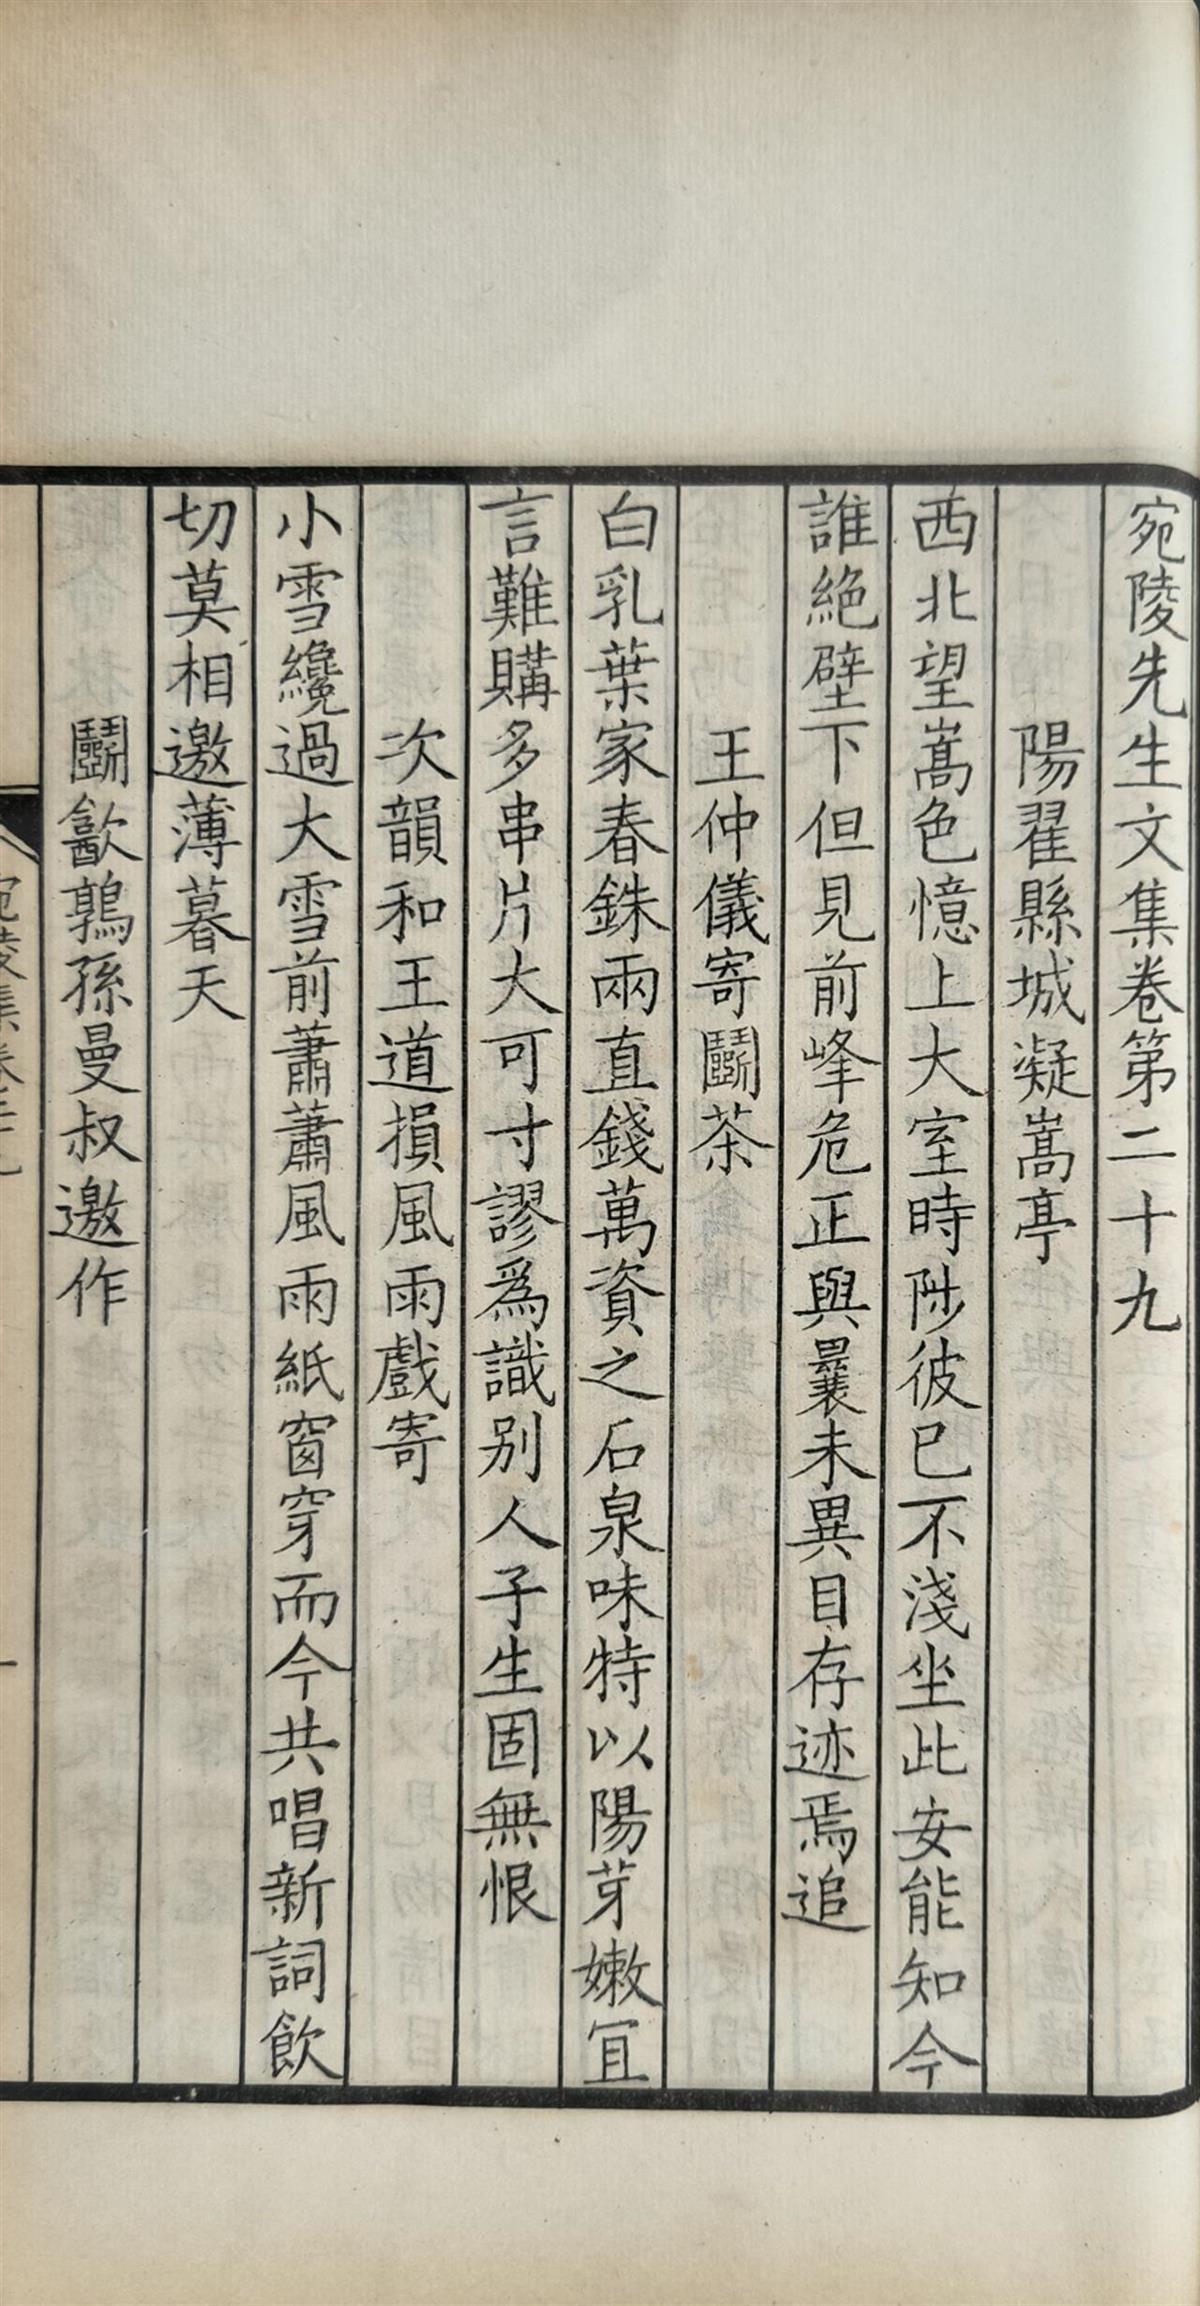 宛陵先生文集卷第二十九
陽翟縣城凝嵩亭
西北望嵩色憶上大室時陟彼已不淺坐此安能知今
誰絶壁下但見前峰危正與曩未異目存迹焉追
王仲儀寄鬭茶
白乳葉家春銖兩直錢萬資之石泉味特以陽芽嫩宜
言難購多串片大可寸謬爲識别人予生固無恨
次韻和王道損風雨戲寄
小雪纔過大雪前蕭蕭風雨紙窗穿而今共唱新詞飲
切莫相邀薄暮天
鬭鶉孫曼叔邀作